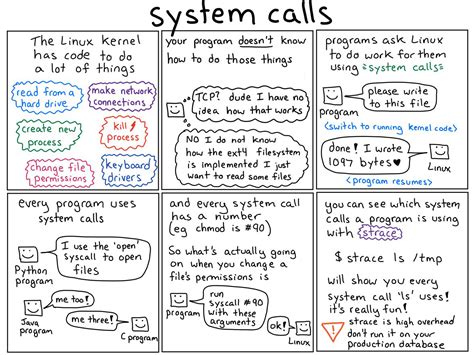 system calls
The Linux kernel
has code to do
a lot of things
read from a
hard drive
make network
connections
create new
process
kill
process
change file
permissions
keyboard
drivers
your program doesn't know
how to do those things
TCP? dude I have no
idea how that works
NO I do not know
how the ext4 filesystem
is implemented I just
want to read some files
programs ask Linux
to do work for them
using system calls
please write
to this file
program
(switch to running kernel code)
done! I wrote
1097 bytes
Linux
(program resumes)
every program uses
system calls
I use the 'open'
syscall to open
files
Python
program
me too!
Java
program
me three!
C program
and every system call
has a number
(eg chmod is #90)
So what's actually going
on when you change a
file's permissions is
run
syscall #90
with these
arguments
program
ok!
Linux
you can see which system
calls a program is using
with strace
$ strace ls /tmp
will show you every
system call 'ls' uses!
it's really fun!
strace is high overhead
don't run it on your
production database